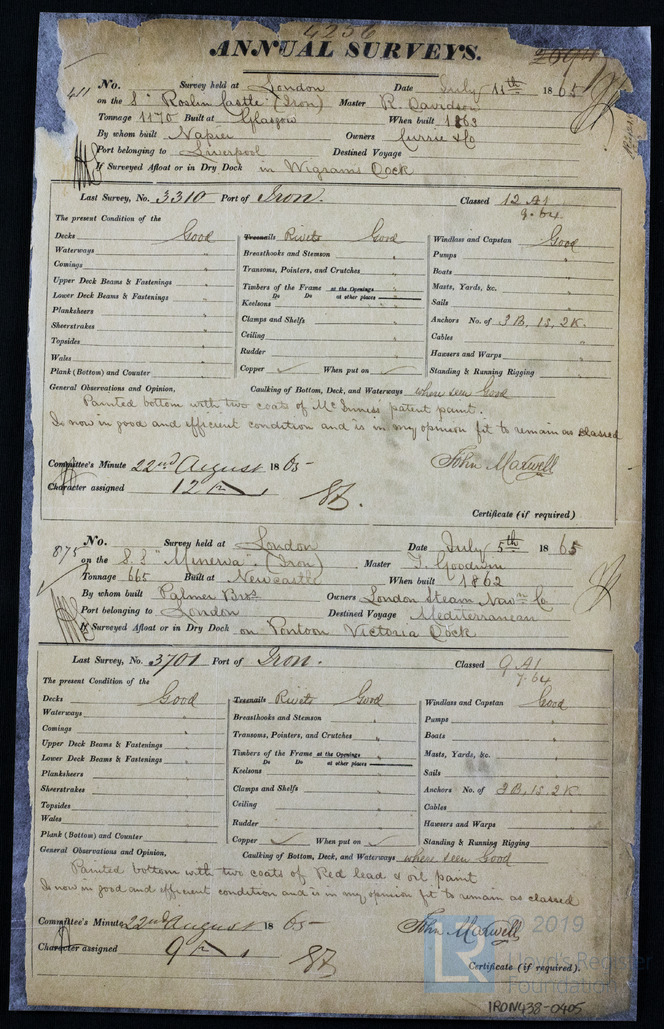 4256
ANNUAL SURVEYS.
411 No. Survey held at London Date July 11th 1865
on the S "Roslin Castle" (Iron) Master R. Davidson
Tonnage 1170 Built at Glasgow When built 1863
By whom built Napier Owners Currie & Co
Port belonging to Liverpool Destined Voyage
If Surveyed Afloat or in Dry Dock in Wigrams Dock
Last Survey, No. 3310 Port of Iron. Classed 12 A1
9.64
The present Condition of the
Decks Good Treenails Rivets Good Windlass and Capstan Good
Waterways " Breasthooks and Stemson " Pumps "
Comings " Transoms, Pointers, and Crutches " Boats "
Upper Deck Beams & Fastenings " Timbers of the Frame at the Openings " Masts, Yards, &c. "
Do Do at other places
Lower Deck Beams & Fastenings " Keelsons " Sails "
Planksheers " Clamps and Shelfs " Anchors No. of 3 B. 1 S. 2 K.
Sheerstrakes " Ceiling " Cables "
Topsides " Rudder " Hawsers and Warps "
Wales " Copper ✓ When put on ✓ Standing & Running Rigging "
Plank (Bottom) and Counter "
General Observations and Opinion, Caulking of Bottom, Deck, and Waterways where seen Good
Painted bottom with two coats of McInness patent paint.
Is now in good and efficient condition and is in my opinion fit to remain as classed
Committee's Minute 22nd August 1865 John Maxwell
Character assigned 12 A 1
Certificate (if required)
875 No. Survey held at London Date July 5th 1865
on the S.S "Minerva". (Iron) Master T. Goodwin
Tonnage 665 Built at Newcastle When built 1862
By whom built Palmer Bros Owners London Steam Navn Co
Port belonging to London Destined Voyage Mediterranean
If Surveyed Afloat or in Dry Dock on Pontoon Victoria Dock
Last Survey, No. 3701 Port of Iron. Classed 9 A1
7.64
The present Condition of the
Decks Good Treenails Rivets Good Windlass and Capstan Good
Waterways " Breasthooks and Stemson " Pumps "
Comings " Transoms, Pointers, and Crutches " Boats "
Upper Deck Beams & Fastenings " Timbers of the Frame at the Openings " Masts, Yards, &c. "
Do Do at other places
Lower Deck Beams & Fastenings " Keelsons " Sails "
Planksheers " Clamps and Shelfs " Anchors No. of 3 B. 1 S. 2 K.
Sheerstrakes " Ceiling " Cables "
Topsides " Rudder " Hawsers and Warps "
Wales " Copper ✓ When put on ✓ Standing & Running Rigging "
Plank (Bottom) and Counter "
General Observations and Opinion, Caulking of Bottom, Deck, and Waterways where seen Good
Painted bottom with two coats of Red lead & oil paint
Is now in good and efficient condition and is in my opinion fit to remain as classed
Committee's Minute 22nd August 1865 John Maxwell
Character assigned 9 A 1
Certificate (if required).
LR 2019
Lloyd's Register
Foundation
IRON438-0405